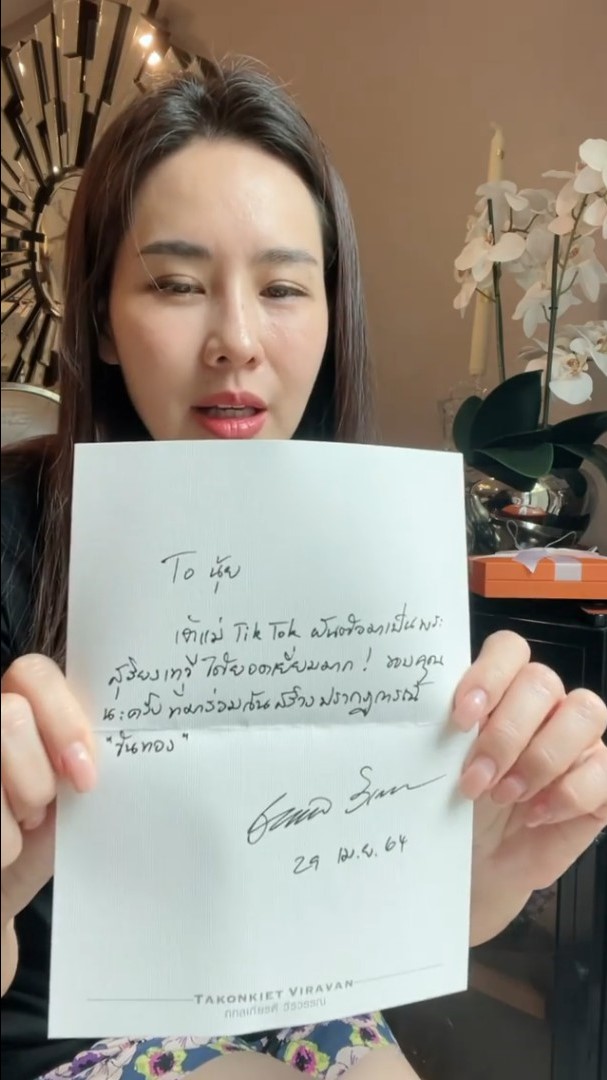 To นุ้ย
เจ้าแม่ Tik Tok ผันตัวมาเป็นพระ
สุริยงเทวี ได้ยอดเยี่ยมมาก! ขอบคุณ
นะครับ ที่มาร่วมกันสร้างปรากฏการณ์
"ขันทอง"
29 เม.ย. 64
TAKONKIET VIRAVAN
ถกลเกียรติ วีรวรรณ